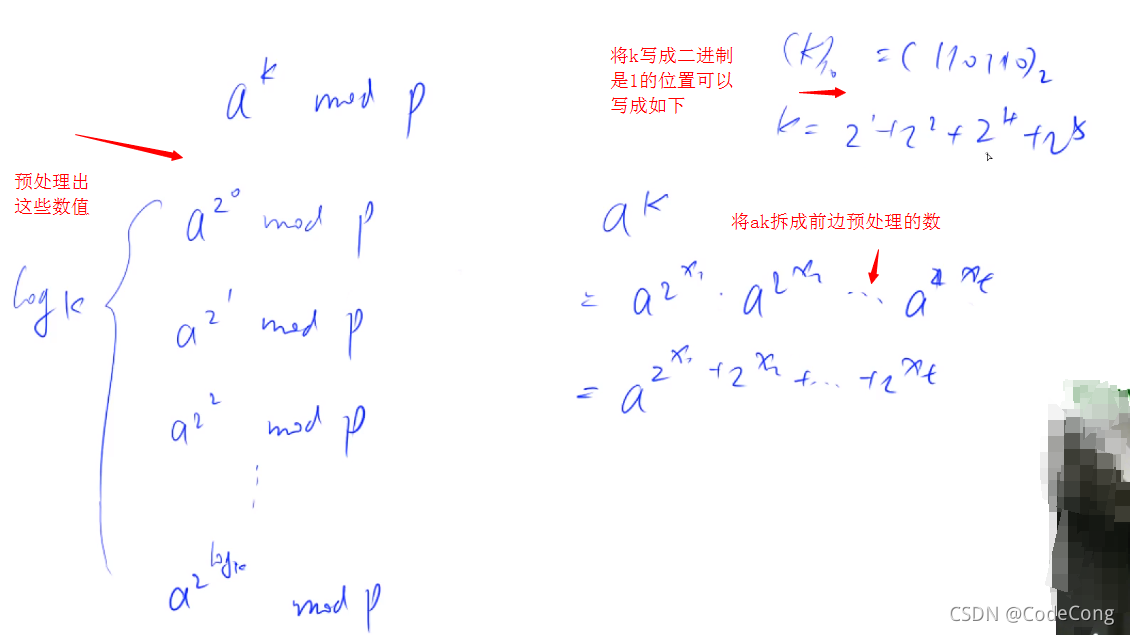 a^k mod p
预处理出
这些数值
log k
a^{2^0} mod p
a^{2^1} mod p
a^{2^2} mod p
⋮
a^{2^{log k}} mod p
将k写成二进制
是1的位置可以
写成如下
(k)_{10} = (110110)_2
k = 2^1 + 2^2 + 2^4 + 2^5
a^k
将ak拆成前边预处理的数
= a^{2^{x_1}} · a^{2^{x_2}} ... a^{2^{x_t}}
= a^{2^{x_1} + 2^{x_2} + ... + 2^{x_t}}
CSDN @CodeCong